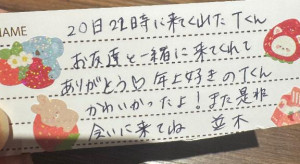 NAME
20日21時に来てくれた Tくん
お友達と一緒に来てくれて
ありがとう♡ 年上好きのTくん
かわいかったよ！また是非
会いに来てね 並木